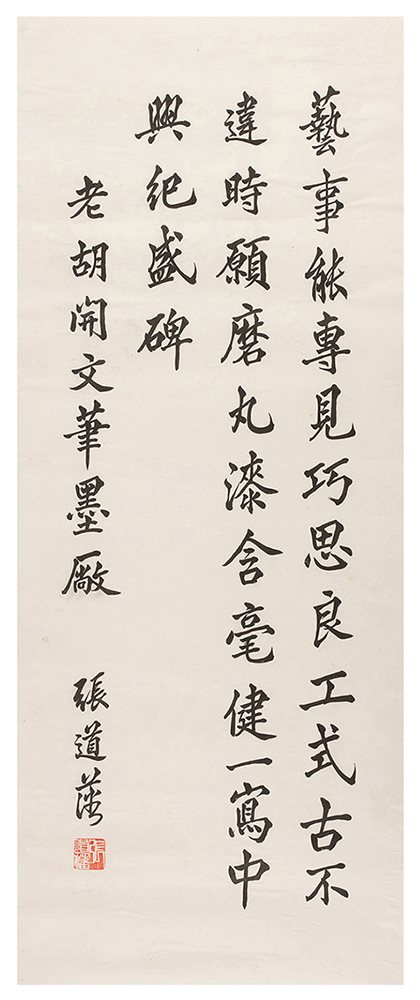 藝事能專見巧思良工式古不
違時願磨丸漆含毫健一寫中
興紀盛碑
老胡開文筆墨廠
張道藩